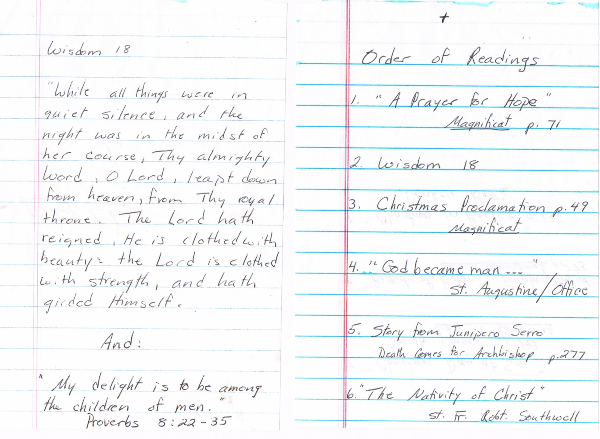 Wisdom 18
"While all things were in
quiet silence, and the
night was in the midst of
her course, Thy almighty
Word, O Lord, leapt down
from heaven, from Thy royal
throne. The Lord hath
reigned, He is clothed with
beauty: the Lord is clothed
with strength, and hath
girded Himself.
And:
"My delight is to be among
the children of men."
Proverbs 8:22-35
+
Order of Readings
1. "A Prayer for Hope"
Magnificat p. 71
2. Wisdom 18
3. Christmas Proclamation p. 49
Magnificat
4. "God became man ..."
St. Augustine/Office
5. Story from Junipero Serro
Death Comes for Archbishop p. 277
6. "The Nativity of Christ"
St. Fr. Robt. Southwell